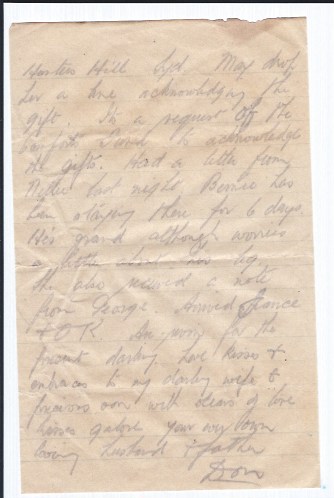 Hunters Hill Syd. May drop
her a line acknowledging the
gift. It's a request of the
Comforts to acknowledge
the gifts. Had a letter from
last night. Bernie has
been staying there for 6 days.
He's grand although worries
a little about
He also received a note
from George. Arrived France
& OK. for the
present darling love kisses &
embraces to my darling wife &
precious son with oceans of love
kisses galore your very own
loving husband & father
Dom